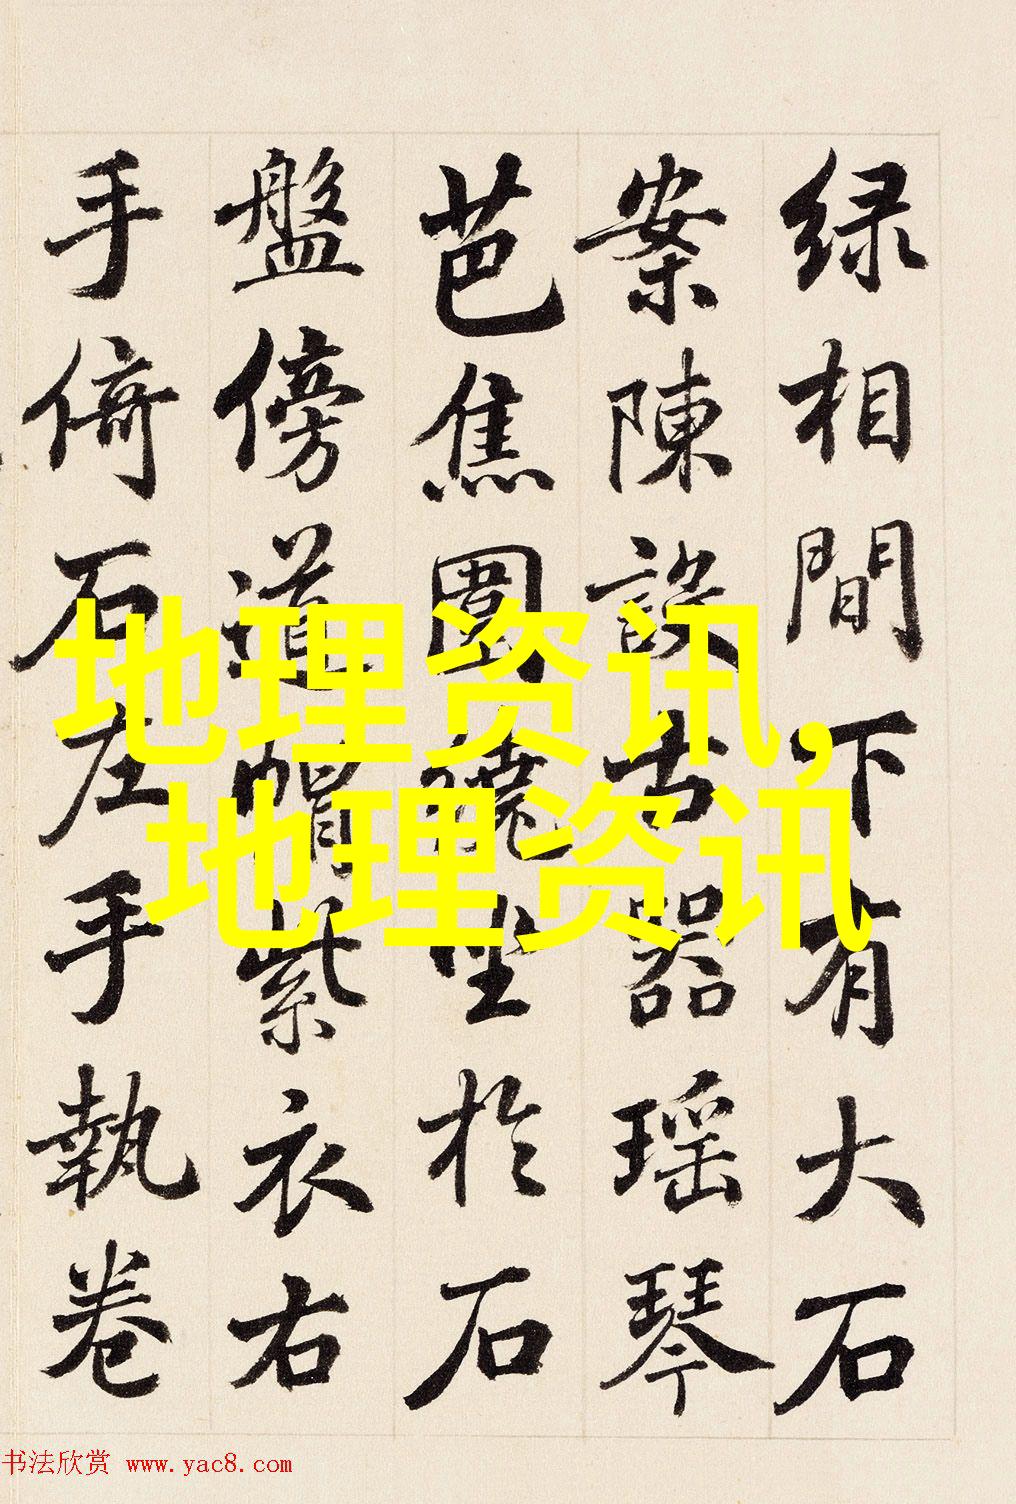 绿相間下有大石
案陳設古器瑶琴
芭焦圍繞坐於石
盤傍道帽紫衣右
手倚石左手執卷
地理资讯,
地理资讯
书法欣赏 www.yac8.com